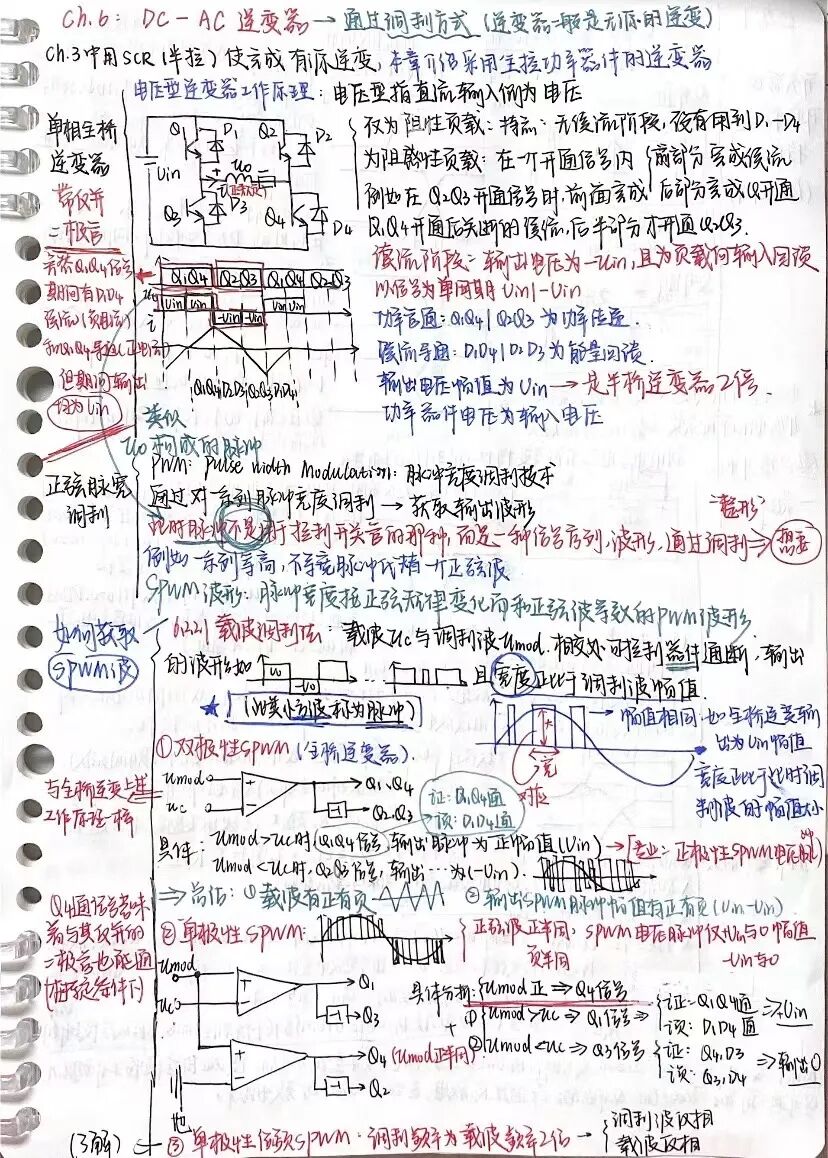 Ch.6: DC-AC 逆变器 → 通过调制方式 (逆变器一般是无源的逆变)
Ch.3中用SCR (半控) 使完成有源逆变, 本章介绍采用全控功率器件的逆变器
电压型逆变器工作原理: 电压型指直流输入侧为电压
单相全桥
逆变器
常仅并
二极管
Q1 D1 Q2 D2
Uin
Uo
Q3 D3 Q4 D4
仅为阻性负载: 特点: 无续流阶段, 没有用到D1-D4
为阻感性负载: 在一个开通信号内 前部分完成续流
例如在Q2Q3开通信号时, 前面完成 后部分完成Q开通
Q1Q4开通后关断的续流, 后半部分才开通Q2Q3.
续流阶段: 输出电压为-Uin, 且为负载向输入回馈
以信号为单周期 Uin|-Uin
功率管通: Q1Q4|Q2Q3 为功率传递.
续流导通: D1D4|D2D3 为能量回馈.
输出电压幅值为Uin → 是半桥逆变器2倍
功率器件电压为输入电压
Q1Q4 Q2Q3 Q1Q4 Q2Q3
Uin Uin -Uin -Uin Uin Uin
i
Q1Q4 D2D3 Q2Q3 D1D4
Q1Q4信号
期间有D1D4
续流
和Q1Q4导通
但期间输出
均为Uin
类似
Uo构成的脉冲
正弦脉宽
调制
PWM: pulse width modulation: 脉冲宽度调制技术
通过对一系列脉冲宽度调制 → 获取输出波形
此时脉冲不是用于控制开关管的那种, 而是一种信号序列、波形, 通过调制 ⇒ 想要
"整形"
例如一系列等高, 不等宽脉冲代替一个正弦波
SPWM波形: 脉冲宽度按正弦规律变化而和正弦波等效的PWM波形.
如何获取
SPWM波
6.2.2) 载波调制法: 载波Uc与调制波Umod. 相交处可控制器件通断, 输出
的波形如 Uo -Uo → 且宽度正比于调制波幅值.
★ (以类小方波称为脉冲)
幅值相同, 如全桥逆变输
出为Uin幅值
宽度正比于此时调
制波的幅值大小
宽
对应
① 双极性SPWM (全桥逆变器).
与全桥逆变上述
工作原理一样
Umod
Uc
Q1、Q4
Q2、Q3
证: Q1Q4通
误: D1D4通
具体: Umod>Uc时 (Q1Q4信号) 输出脉冲为正幅值(Uin) → [专业: 正极性SPWM电压脉冲]
Umod<Uc时, Q2Q3信号, 输出…为(-Uin).
⇒ 总结: ① 载波有正有负 ② 输出SPWM脉冲幅值有正有负(Uin-Uin)
Q4通信号意味
着与其反并的
二极管也能通
(在特定条件下)
② 单极性SPWM:
正弦波正半周, SPWM电压脉冲仅+Uin与0幅值
负半周 -Uin与0
Umod
Uc
Q1
Q3
Q4 (Umod正半周)
Q2
地
具体分析: Umod正 ⇒ Q4信号
+
① Umod>Uc ⇒ Q1信号 ⇒ 证: Q1Q4通 ⇒ Uin
误: D1D4通
② Umod<Uc ⇒ Q3信号 证: Q4,D3 ⇒ 输出0
误: Q3,D4
(3解) ③ 单极性倍频SPWM: 调制频率为载波频率2倍 → 调制波反相
载波反相